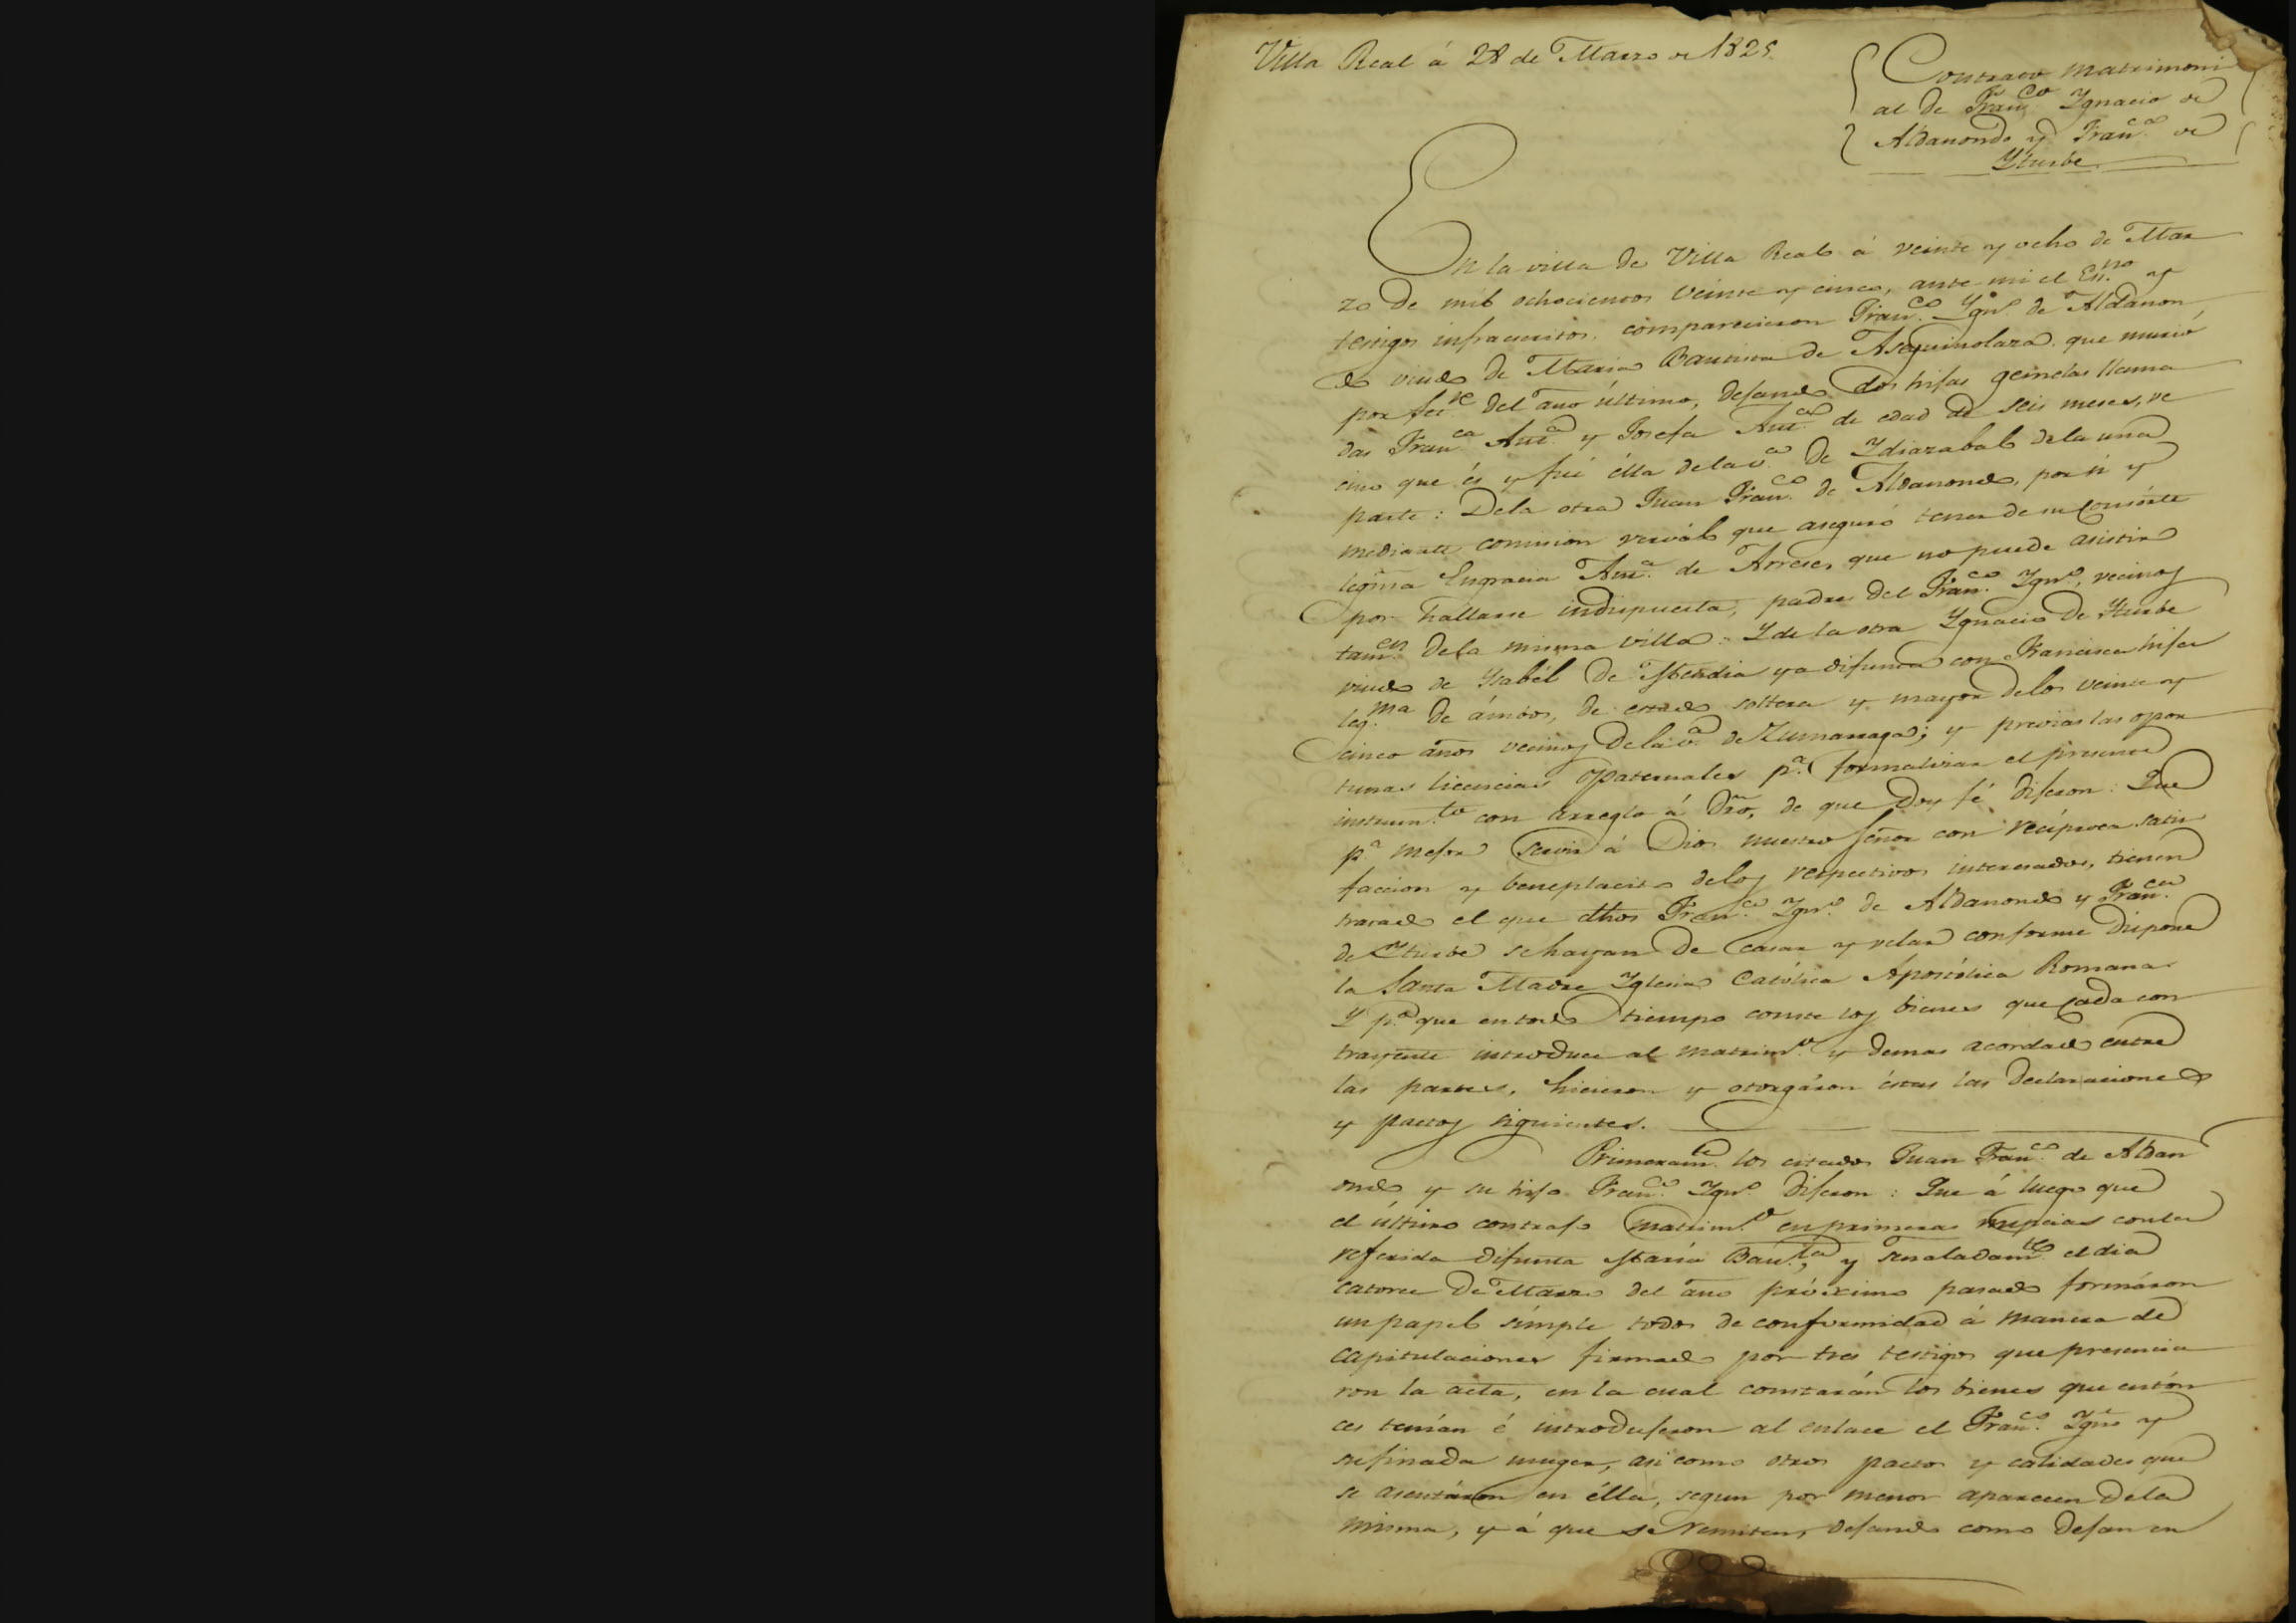 Villa Real á 28 de Marzo de 1825
Contrato matrimoni
al de Fran.co Ygnacio de
Aldanondo y Fran.ca de
Yturbe
En la villa de Villa Real á veinte y ocho de Mar
zo de mil ochocientos veinte y cinco, ante mi el Esc.no y
testigos infraescritos comparecieron Fran.co Ygn.o de Aldanon
do viudo de Maria Bautista de Aseguinolaza que murió
por del año último, dejando dos hijas gemelas llama
das Fran.ca Ant.a y Josefa Ant.a de edad de seis meses, ve
cino que és y fué élla de la v.a de Ydiazabal de la una
parte: De la otra Juan Fran.co de Aldanondo, por si y
mediante comision verval que aseguró tener de su consorte
legma Engracia Ant.a de Arrese, que no puede asistir
por hallarse indispuesta, padres del Fran.co Ygn.o, vecinos
tam.en de la misma villa: Y de la otra Ygnacio de Yturbe
viudo de Ysabél de Mendia ya difunta con Francisca hija
leg.ma de ámbos, de estado soltera y mayor de los veinte y
cinco años vecinos de la v.a de Zumarraga; y previas las opor
tunas licencias paternales p.a formalizar el presente
instrum.to con arreglo á Dro, de que doy fé dijeron: Que
p.a mejor servir á Dios nuestro Señor con recíproca satis
faccion y beneplacito de los respectivos interesados, tienen
tratado el que dhos Fran.co Ygn.o de Aldanondo y Fran.ca
de Yturbe se hayan de casar y velar conforme dispone
la Santa Madre Yglesia Católica Apostólica Romana
Y p.a que en todo tiempo conste los bienes que cada con
trayente introduce al matrim.o y demas acordado entre
las partes, hicieron y otorgáron éstas las declaraciones
y pactos siguientes.
Primeram.te los citados Juan Fran.co de Aldan
ondo y su hijo Fran.co Ygn.o dijeron: Que á luego que
el último contrajo matrim.o en primeras nupcias con la
referida difunta María Bau.ta, y señaladam.te el dia
catorce de Marzo del año próximo pasado formáron
un papel símple todos de conformidad á manera de
capitulaciones firmado por tres testigos que presencia
ron la acta, en la cual constarán los bienes que entón
ces tenían é introdujeron al enlace el Fran.co Ygn.o y
su finada muger, asi como otros pactos y calidades que
se asentáron en élla, segun por menor aparecen de la
misma, y á que se remiten, dejando como dejan en